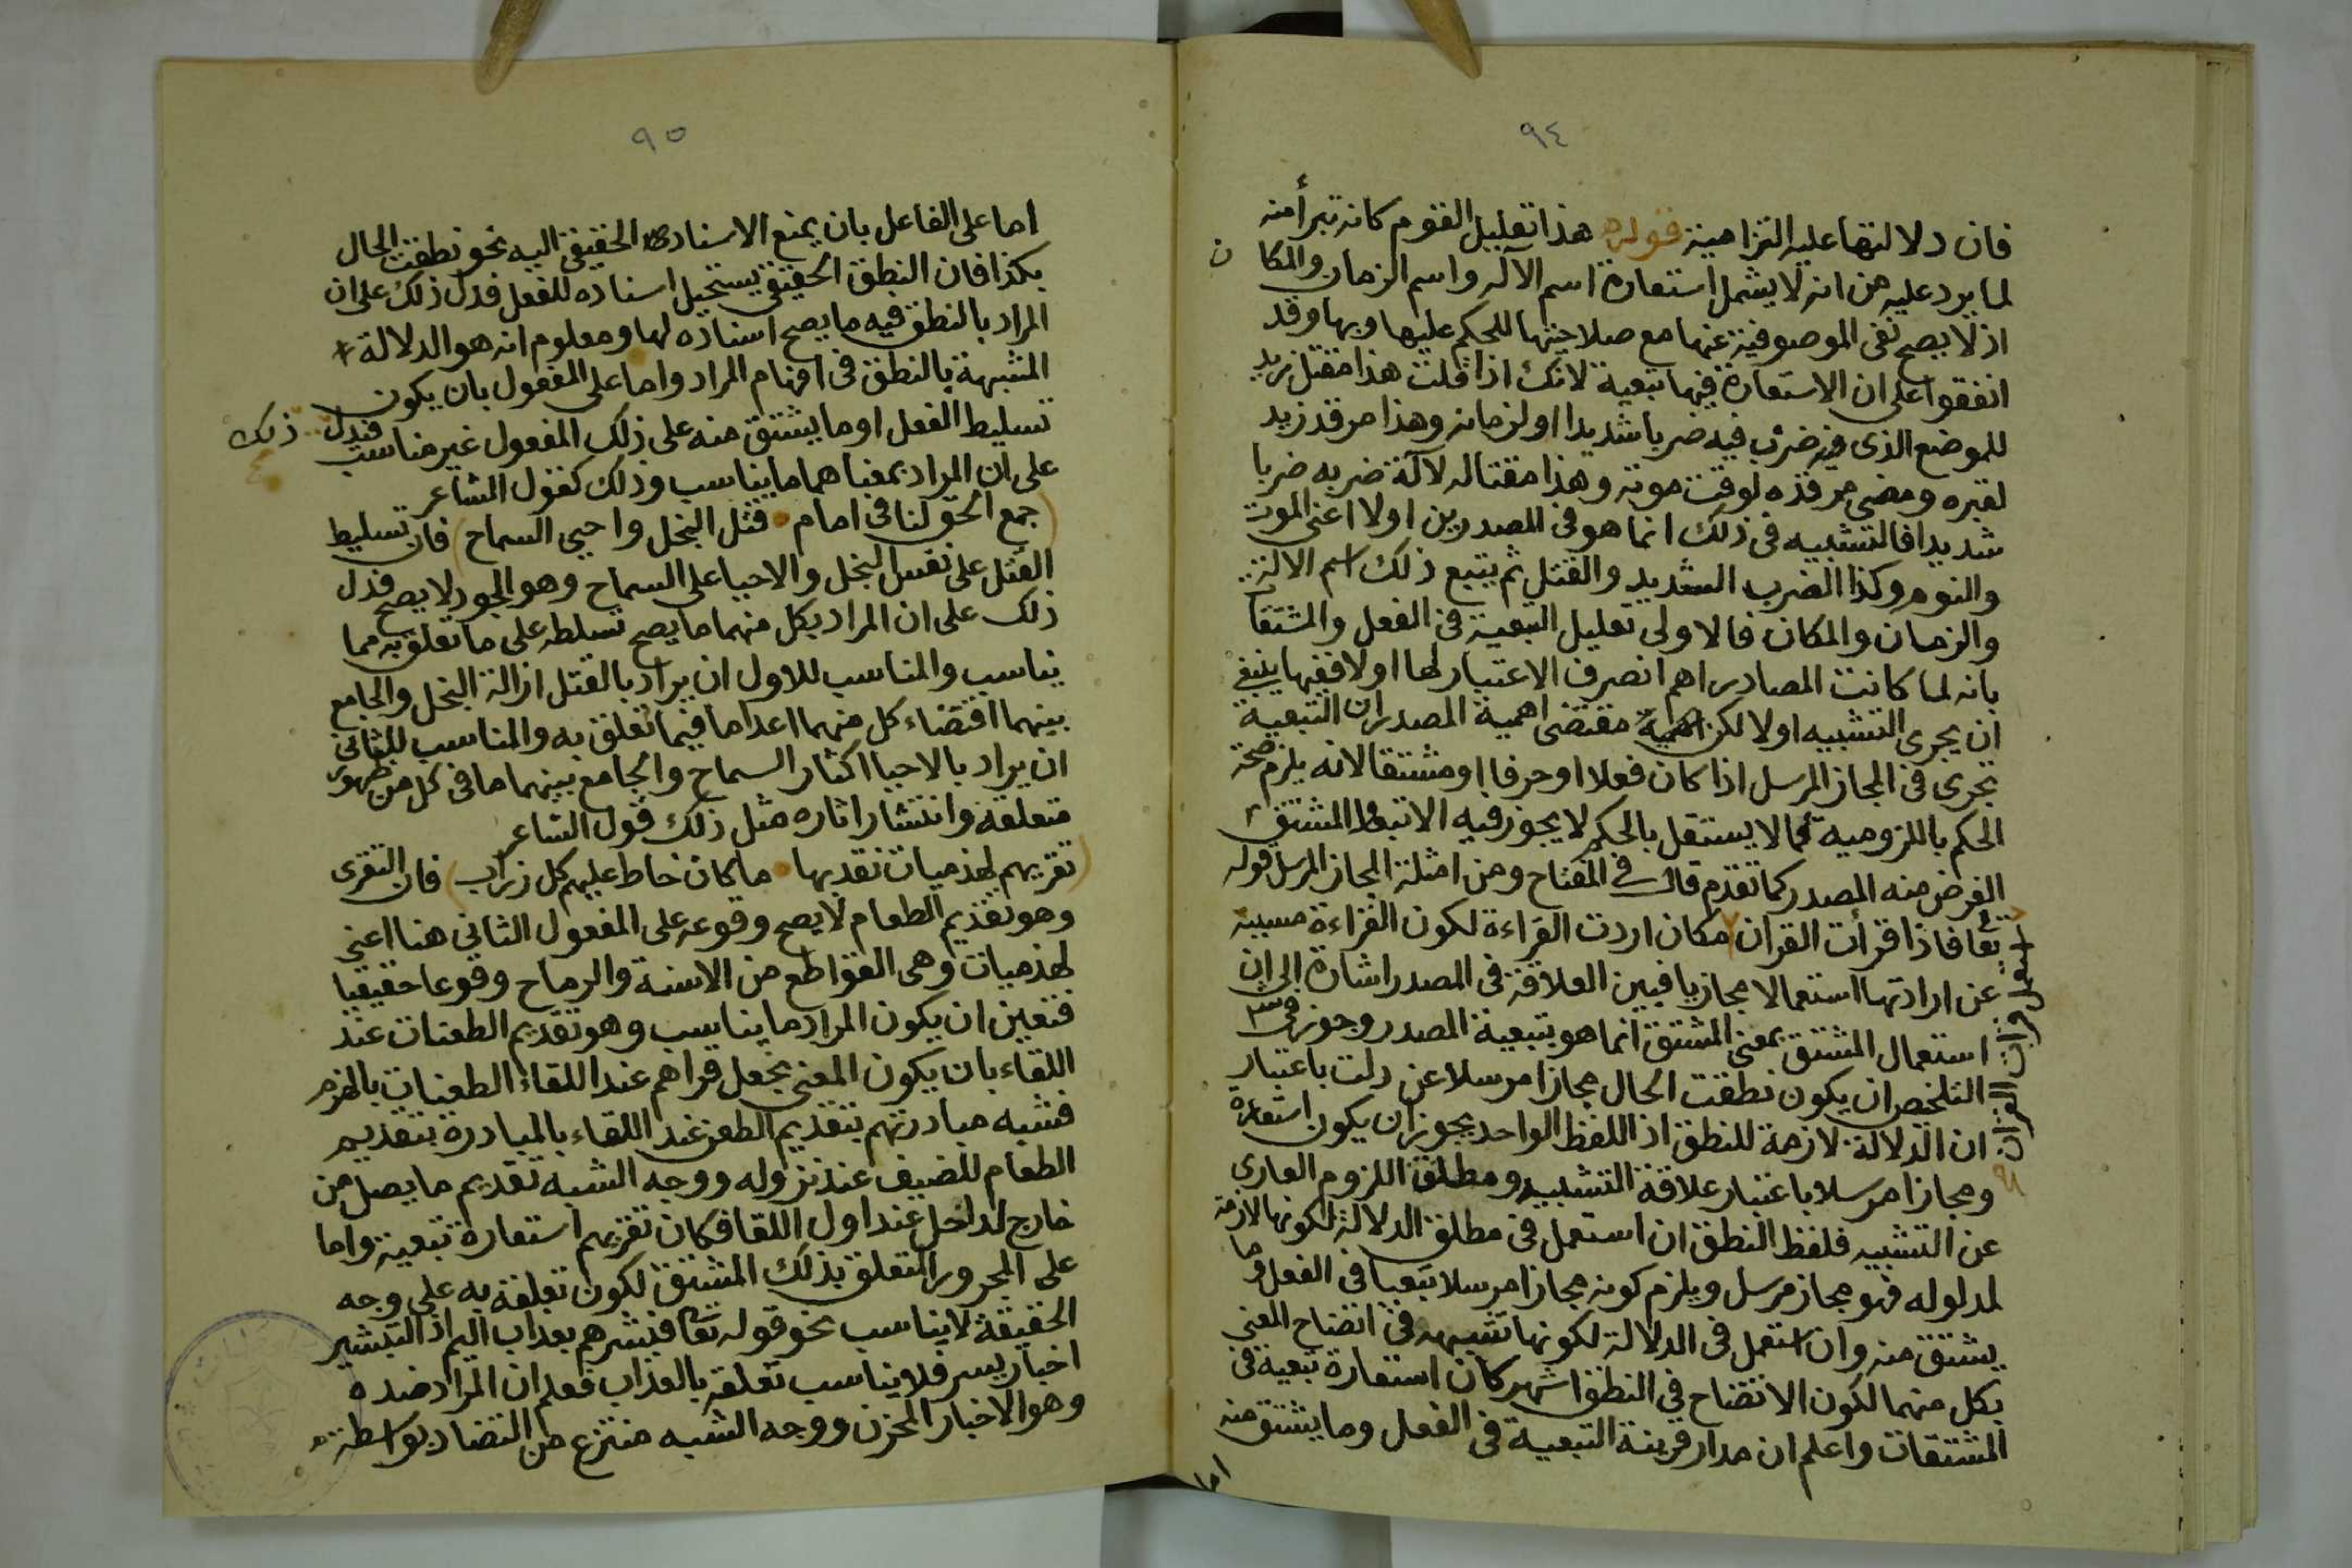 ٩٤
فان دلالتها عليه التزامية قوله هذا تعليل القوم كانه تبرأ منه
لما يرد عليه من انه لا يشمل استعارة اسم الآلة واسم الزمان والمكان
اذ لا يصح نفى الموصوفية عنها مع صلاحيتها للحكم عليها وبها وقد
اتفقوا على ان الاستعارة فيها تبعية لانك اذا قلت هذا مقتل زيد
للموضع الذى ضرب فيه ضربا شديدا او لزمانه وهذا مرقد زيد
لقبره ومضى مرقده لوقت موته وهذا مقتاله لآلة ضربه ضربا
شديدا فالتشبيه فى ذلك انما هو فى المصدرين اولا اعنى الموت
والنوم وكذا الضرب الشديد والقتل ثم يتبع ذلك اسم الالة
والزمان والمكان فالاولى تعليل التبعية فى الفعل والمشتقات
بانه لما كانت المصادر اهم انصرف الاعتبار لها اولا ففيها ينبغى
ان يجرى التشبيه اولا لكن مقتضى اهمية المصدر ان التبعية
تجرى فى المجاز المرسل اذا كان فعلا او حرفا او مشتقا لانه يلزم صحة
الحكم باللزومية فما لا يستقل بالحكم لا يجوز فيه الا تبعا والمشتق
الغرض منه المصدر كما تقدم قال فى المفتاح ومن امثلة المجاز المرسل قوله
تعا فاذا قرأت القران مكان اردت القراءة لكون القراءة مسببة
استعمل قرأت القران
عن ارادتها استعمالا مجازيا فبين العلاقة فى المصدر اشارة الى ان
استعمال المشتق بمعنى المشتق انما هو بتبعية المصدر وجوز فى
التلخيص ان يكون نطقت الحال مجازا مرسلا عن دلت باعتبار
ان الدلالة لازمة للنطق اذ اللفظ الواحد يجوز ان يكون استعارة
ومجازا مرسلا باعتبار علاقة التشبيه ومطلق اللزوم العارى
عن التشبيه فلفظ النطق ان استعمل فى مطلق الدلالة لكونها لازمة
لمدلوله فهو مجاز مرسل ويلزم كونه مجازا مرسلا تبعيا فى الفعل وما
يشتق منه وان استعمل فى الدلالة لكونها شبيهة فى اتضاح المعنى
بكل منهما لكون الاتضاح فى النطق اشهر كان استعارة تبعية فى
المشتقات واعلم ان مدار قرينة التبعية فى الفعل وما يشتق منه
اما
٩٥
اما على الفاعل بان يمنع الاسناد الحقيقى اليه نحو نطقت الحال
بكذا فان النطق الحقيقى يستحيل اسناده للفعل فدل ذلك على ان
المراد بالنطق فيه ما يصح اسناده لها ومعلوم انه هو الدلالة
المشبهة بالنطق فى افهام المراد واما على المفعول بان يكون
تسليط الفعل او ما يشتق منه على ذلك المفعول غير مناسب فيدل ذلك
على ان المراد بمعناهما ما يناسب وذلك كقول الشاعر
(جمع الحق لنا فى امام • قتل البخل واحيى السماح) فان تسليط
القتل على نفس البخل والاحيا على السماح وهو الجود لا يصح فدل
ذلك على ان المراد بكل منهما ما يصح تسلطه على ما تعلق به مما
يناسب والمناسب للاول ان يراد بالقتل ازالة البخل والجامع
بينهما اقتضاء كل منهما اعداما فيما تعلق به والمناسب للثانى
ان يراد بالاحيا اكثار السماح والجامع بينهما ما فى كل من ظهور
متعلقه وانتشار اثاره مثل ذلك قول الشاعر
(تقريهم لهذميات نقد بها • ما كان خاط عليهم كل زراب) فان التقرى
وهو تقديم الطعام لا يصح وقوعه على المفعول الثانى هنا اعنى
لهذميات وهى القواطع من الاسنة والرماح وقوعا حقيقيا
فتعين ان يكون المراد ما يناسب وهو تقديم الطعنات عند
اللقاء بان يكون المعنى نجعل قراهم عند اللقاء الطعنات باللهزم
فشبه مبادرتهم بتقديم الطعن عند اللقاء بالمبادرة بتقديم
الطعام للضيف عند نزوله ووجه الشبه تقديم ما يصل من
خارج لداخل عند اول اللقا فكان تقريهم استعارة تبعية واما
على المجرور المتعلق بذلك المشتق لكون تعلقه به على وجه
الحقيقة لا يناسب نحو قوله تعا فبشرهم بعذاب اليم اذ التبشير
اخبار يسر فلا يناسب تعلقه بالعذاب فعلم ان المراد ضده
وهو الاخبار المحزن ووجه الشبه منتزع من التضاد بواسطة